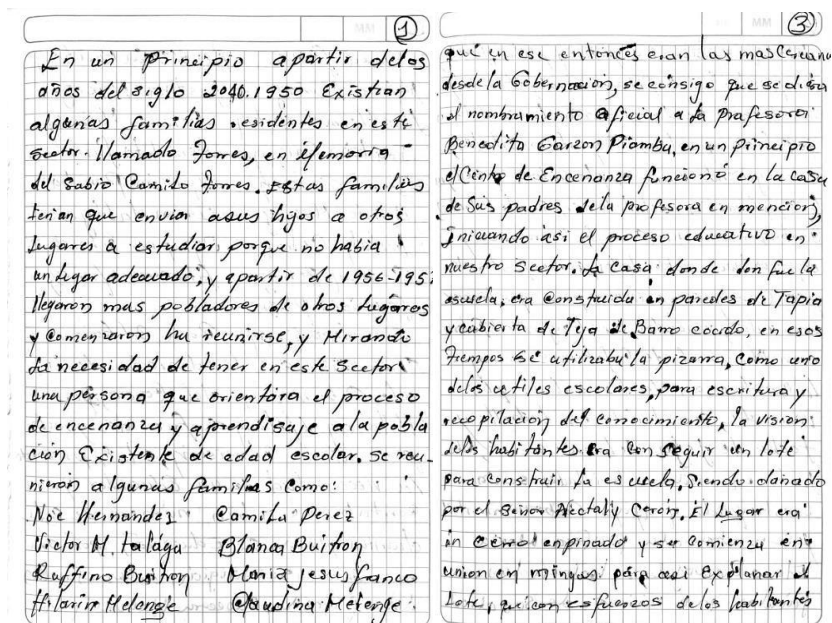 MM
1
En un principio apartir delos
años del siglo 2040.1950 Existian
algunas familias residentes en este
sector. llamado Torres, en Memoria
del Sabio Camilo Torres. Estas familias
tenian que enviar asus hijos a otros
lugares a estudiar porque no habia
un lugar adecuado, y apartir de 1956-195
llegaron mas pobladores de otros lugares
y Comenzaron ha reunirse, y Mirando
la necesidad de tener en este Sector
una persona que orientara el proceso
de encenanza y aprendisaje a la pobla
ción Existente de edad escolar. se reu-
nieron algunas familias Como:
Noe Hernandez Camila Perez
Victor M. talaga Blanca Buitron
Ruffino Buitron Maria Jesus franco
Hilario Melenge Claudina Melenge.
MM
3
que en ese entonces eran las mas Cercana
desde la Gobernación, se consigo que se diera
el nombramiento oficial a la profesora
Benedita Garzon Piamba, en un principio
el Centro de Encenanza funcionó en la casa
de Sus padres dela profesora en mención,
Iniciando asi el proceso educativo en
nuestro Sector. La casa donde don fue la
escuela, era Construida en paredes de Tapia
y cubierta de Teja de Barro cocido, en esos
Tiempos se utilizaba la pizarra, Como uno
delos utiles escolares, para escritura y
recopilación del conocimiento, la visión
delos habitantes era Conseguir un lote
para construir la escuela, Siendo donado
por el Señor Cerón, El Lugar era
un cerro enpinado y se comienza en
union en mingas para asi Explanar el
Lote, que con esfuerzos delos habitantes